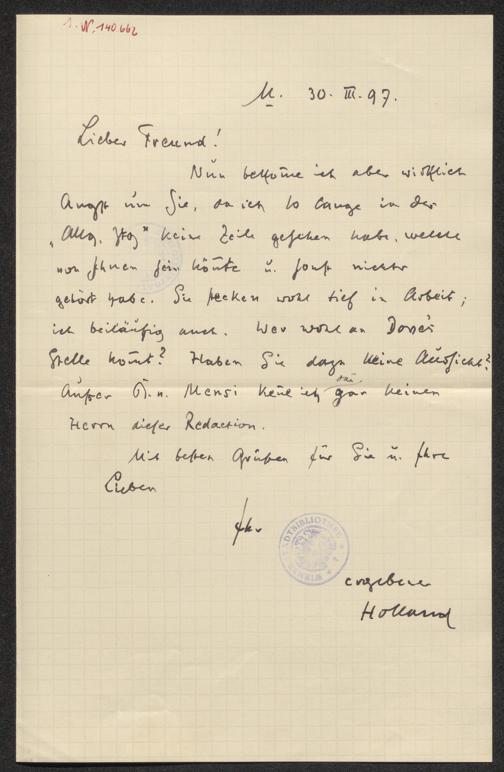 1. N. 140.662
M. 30. III. 97.
Lieber Freund!
Nun bekom̄e ich aber wirklich
Angst um Sie, da ich so lange in der
„Allg. Ztg" keine Zeile gesehen habe, welche
von Ihnen sein kön̄te u. sonst nichts
gehört habe. Sie stecken wohl tief in Arbeit;
ich beiläufig auch. Wer wohl an Dove's
Stelle kom̄t? Haben Sie dazu keine Aussicht?
Außer v. Mensi ken̄e ich gar keinen
Herrn dieser Redaction.
Mit besten Grüßen für Sie u. Ihre
Lieben
Ihr
WIENER STADTBIBLIOTHEK
ergebener
Holland